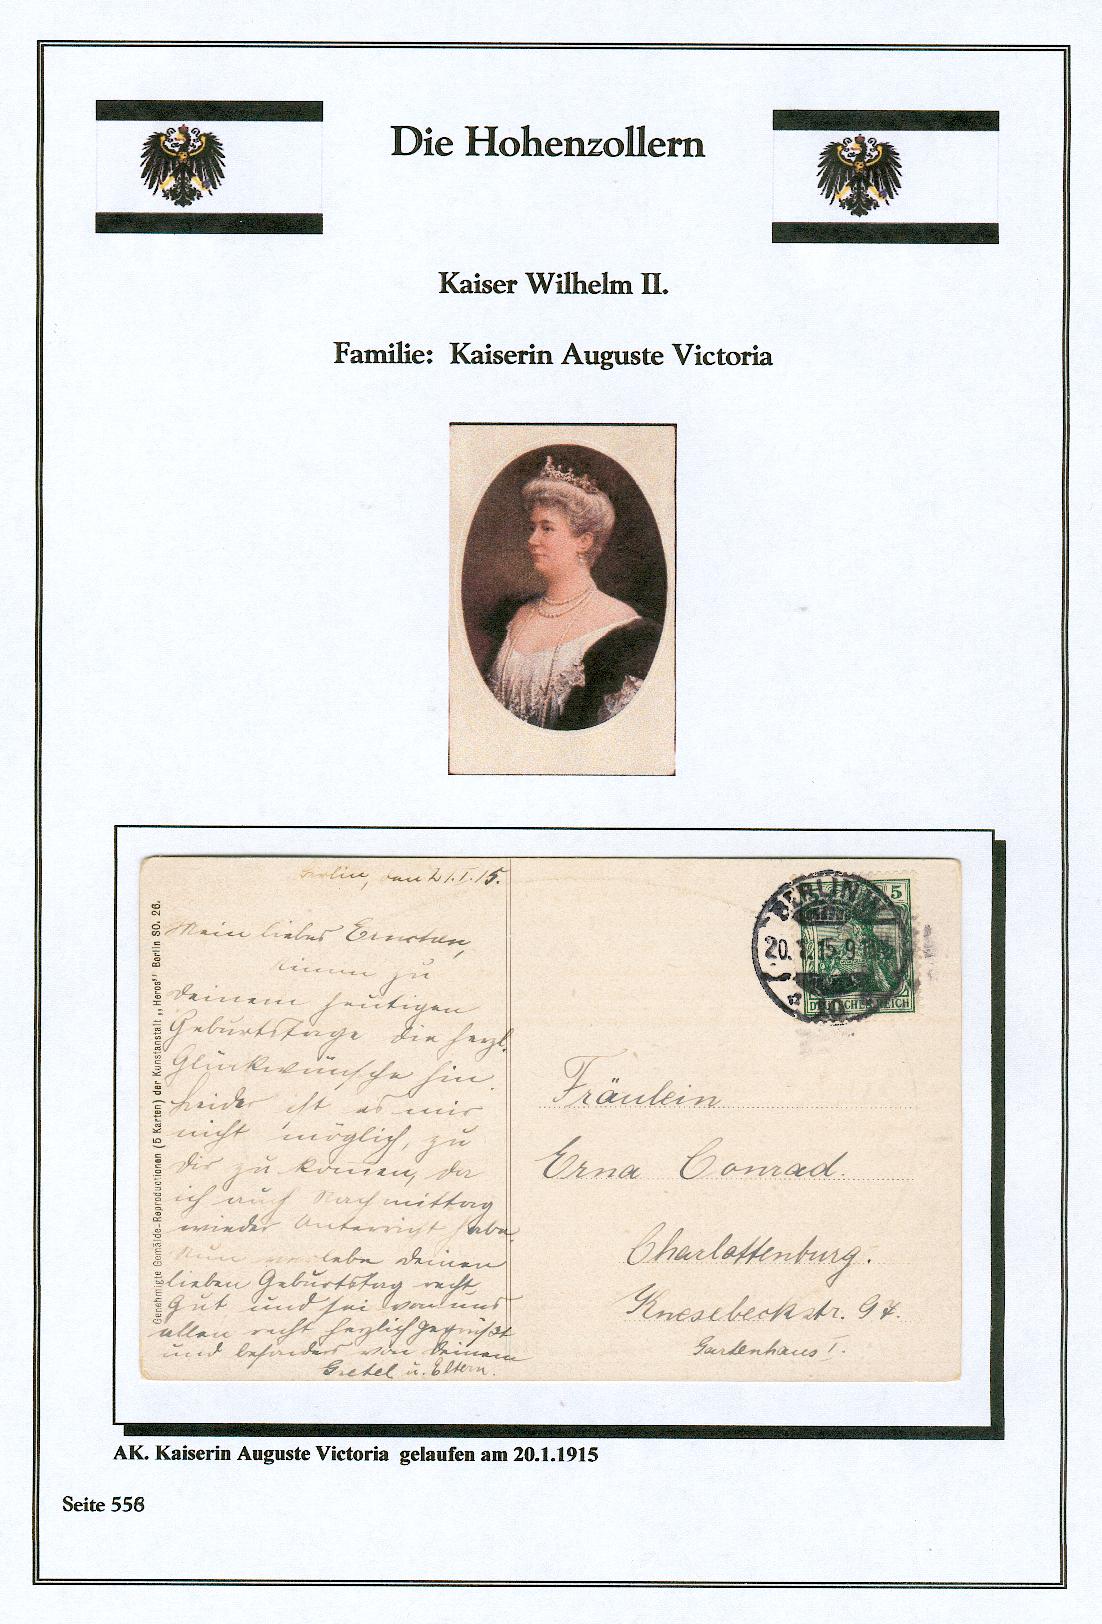 Die Hohenzollern
Kaiser Wilhelm II.
Familie: Kaiserin Auguste Victoria
Genehmigte Gemälde-Reproductionen (5 Karten) der Kunstanstalt „Heros" Berlin SO. 26.
Berlin, den 21.I.15.
Mein liebes Ernchen,
zu
deinem heutigen
Geburtstage die herzl.
Glückwünsche hin.
Leider ist es mir
nicht möglich, zu
dir zu kommen, da
ich auch Nachmittag
wieder Unterricht habe.
Nun verlebe deinen
lieben Geburtstag recht
Gut und sei von uns
allen recht herzlich gegrüßt
und besonders von deinem
Gretel u. Eltern.
BERLIN W
20. 1. 15. 9
5
DEUTSCHES REICH
Fräulein
Erna Conrad.
Charlottenburg.
Knesebeckstr. 97.
Gartenhaus I.
AK. Kaiserin Auguste Victoria gelaufen am 20.1.1915
Seite 556